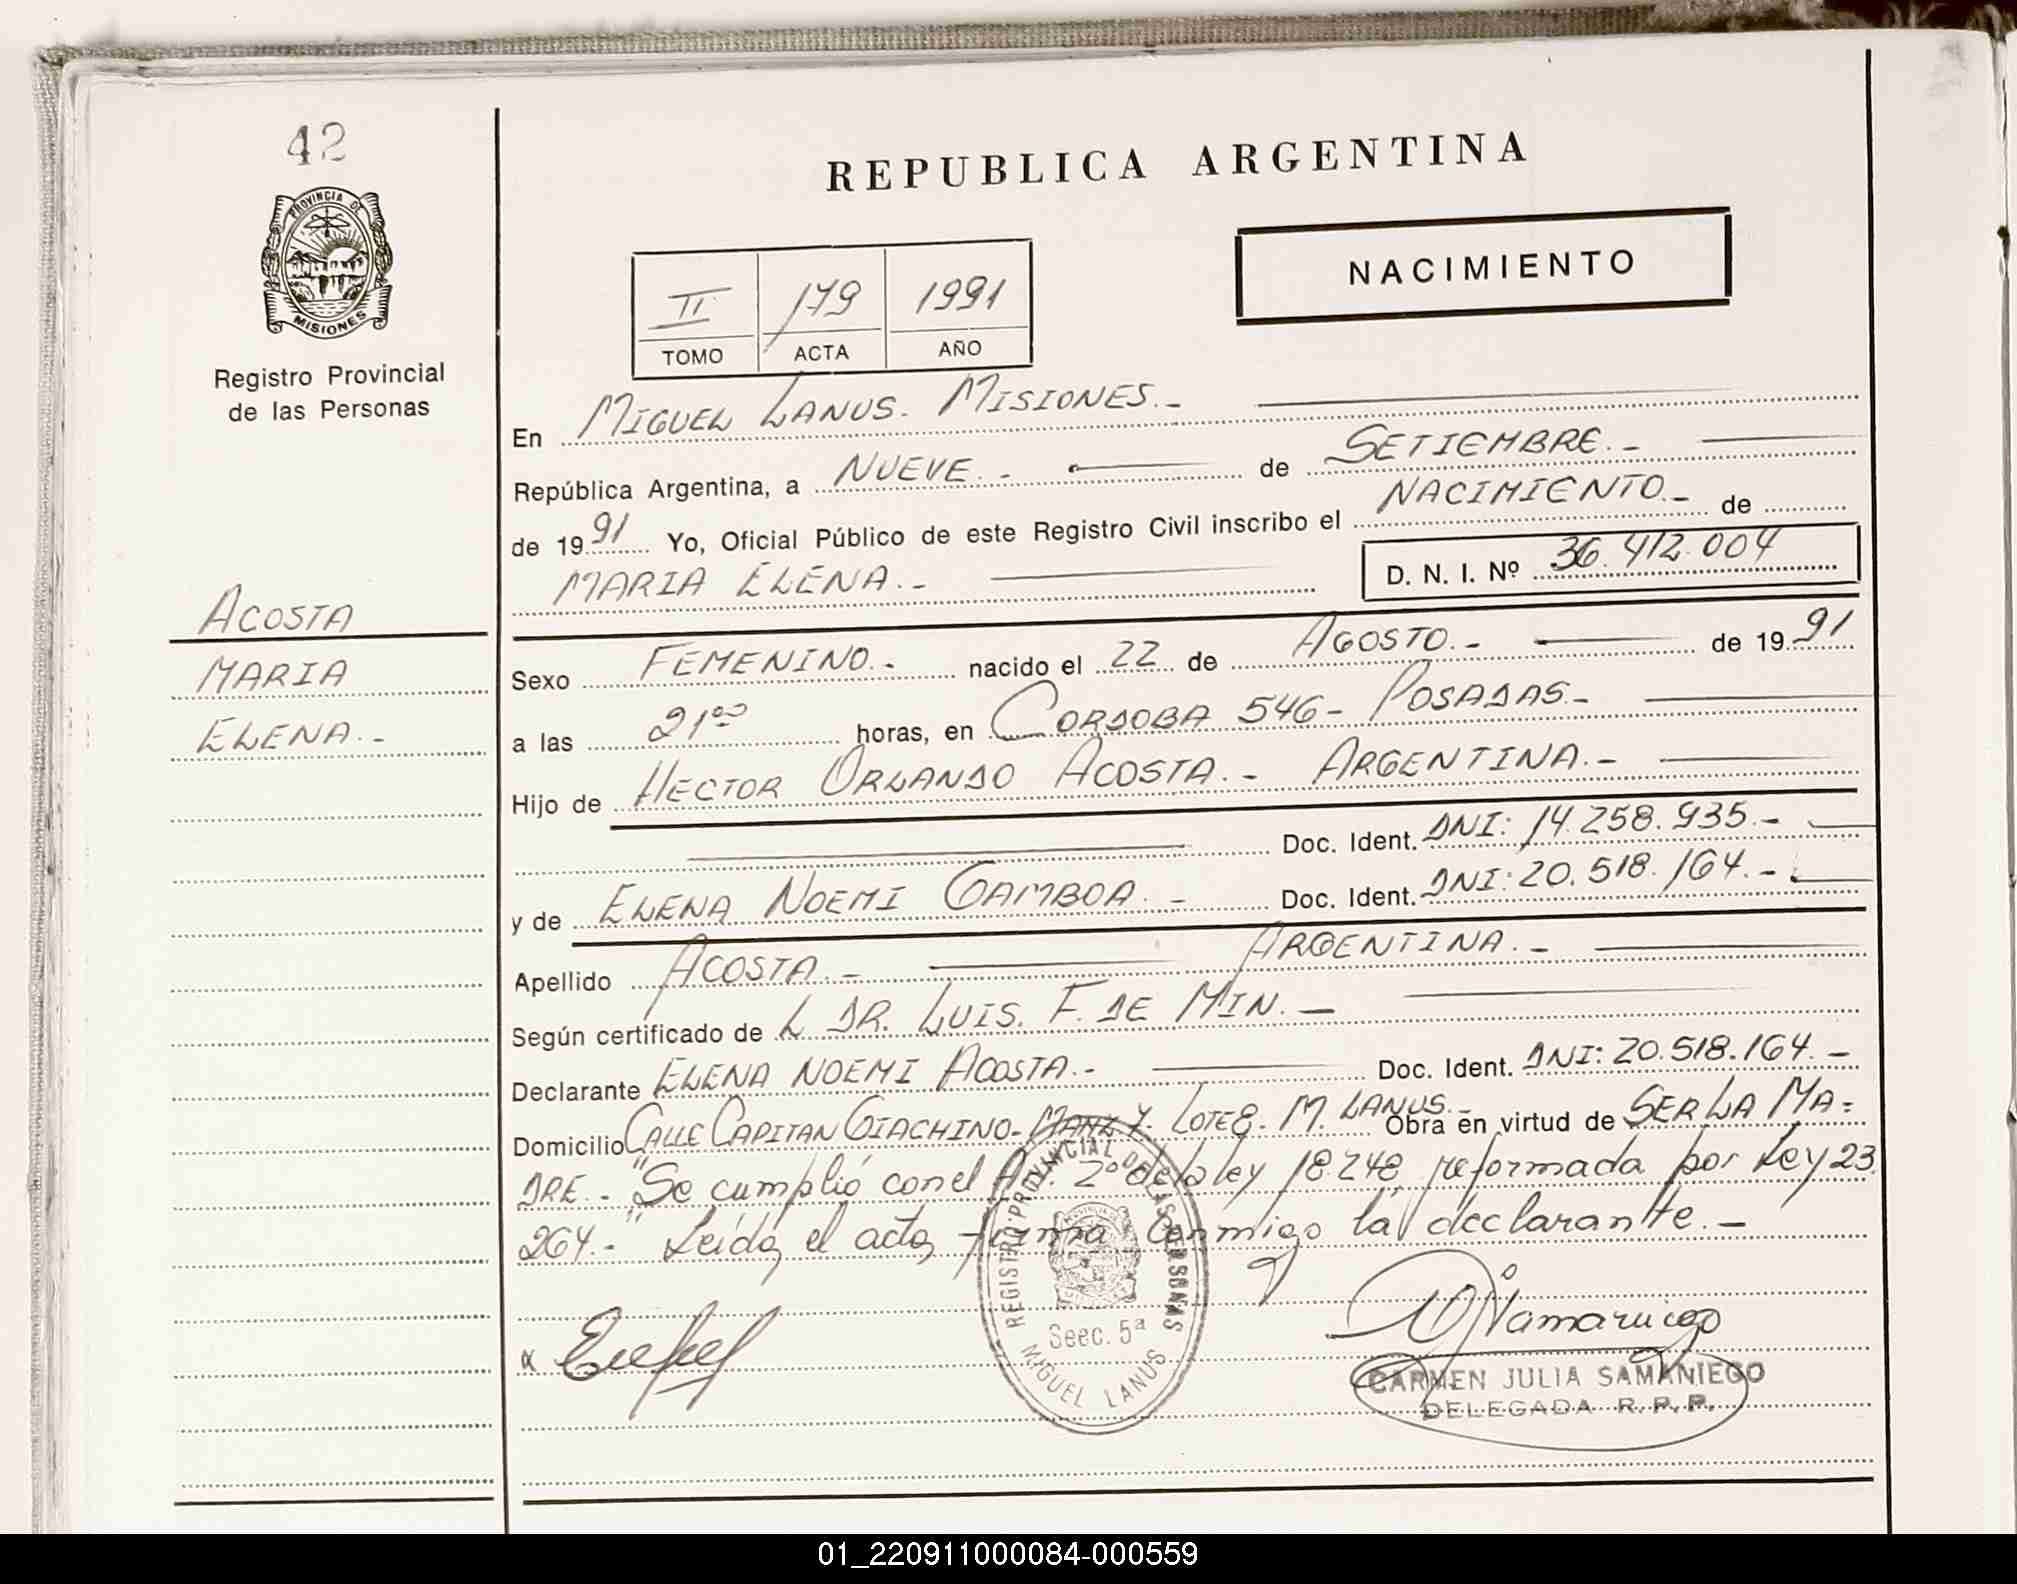 42
PROVINCIA DE
MISIONES
Registro Provincial
de las Personas
ACOSTA
MARIA
ELENA.-
REPUBLICA ARGENTINA
NACIMIENTO
II 179 1991
TOMO ACTA AÑO
En MIGUEL LANUS. MISIONES.-
República Argentina, a NUEVE.- de SETIEMBRE.-
de 1991 Yo, Oficial Público de este Registro Civil inscribo el NACIMIENTO.- de
MARIA ELENA.- D. N. I. Nº 36.412.004
Sexo FEMENINO.- nacido el 22 de AGOSTO.- de 1991
a las 21⁰⁰ horas, en CORDOBA 546- POSADAS.-
Hijo de HECTOR ORLANDO ACOSTA.- ARGENTINA.-
Doc. Ident. DNI: 14.258.935.-
y de ELENA NOEMI GAMBOA.- Doc. Ident. DNI: 20.518.164.-
Apellido ACOSTA.- ARGENTINA.-
Según certificado de L DR. LUIS. F. DE MIN.-
Declarante ELENA NOEMI ACOSTA.- Doc. Ident. DNI: 20.518.164.-
Domicilio CALLE CAPITAN GIACHINO- MANZ Y. LOTE 8. M. LANUS.- Obra en virtud de SER LA MA=
DRE.- "Se cumplió con el Art. 2º de la ley 18.248, reformada por Ley 23.
264.-" Leída el acta, firma conmigo la declarante.-
REGISTRO PROVINCIAL DE LAS PERSONAS
Secc. 5ª
MIGUEL LANUS
CARMEN JULIA SAMANIEGO
DELEGADA R. P. P.
01_220911000084-000559